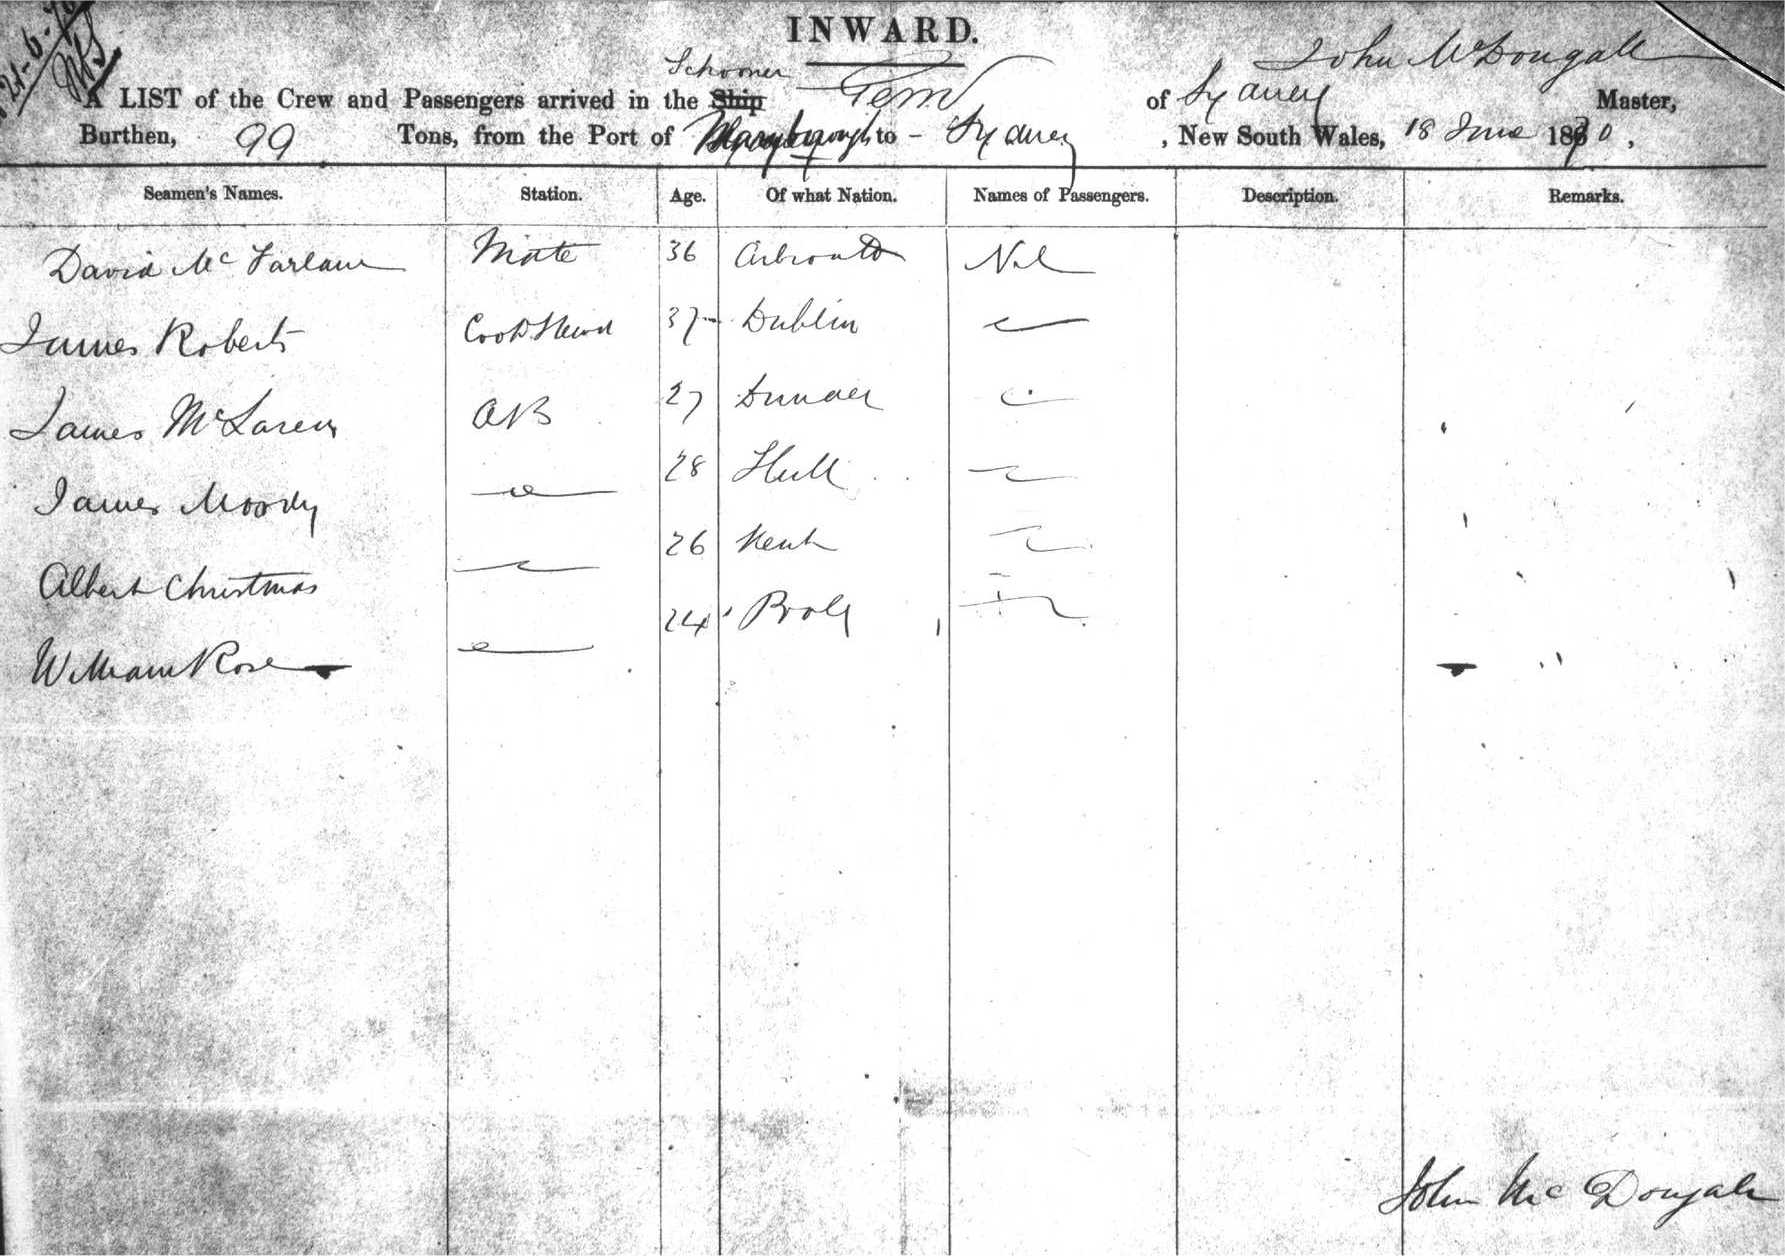 21-6-70
INWARD.
Schooner John McDougall
A LIST of the Crew and Passengers arrived in the Ship Fern of Sydney Master,
Burthen, 99 Tons, from the Port of Maryborough to - Sydney, New South Wales, 18 June 1870,
Seamen's Names. Station. Age. Of what Nation. Names of Passengers. Description. Remarks.
David McFarlane Mate 36 Arbroath Nil
James Roberts Cook & Stewd 37 Dublin
James McLaren AB 27 Dundee
James Moody 28 Hull
Albert Christmas 26 Kent
William Rose 24
John McDougall